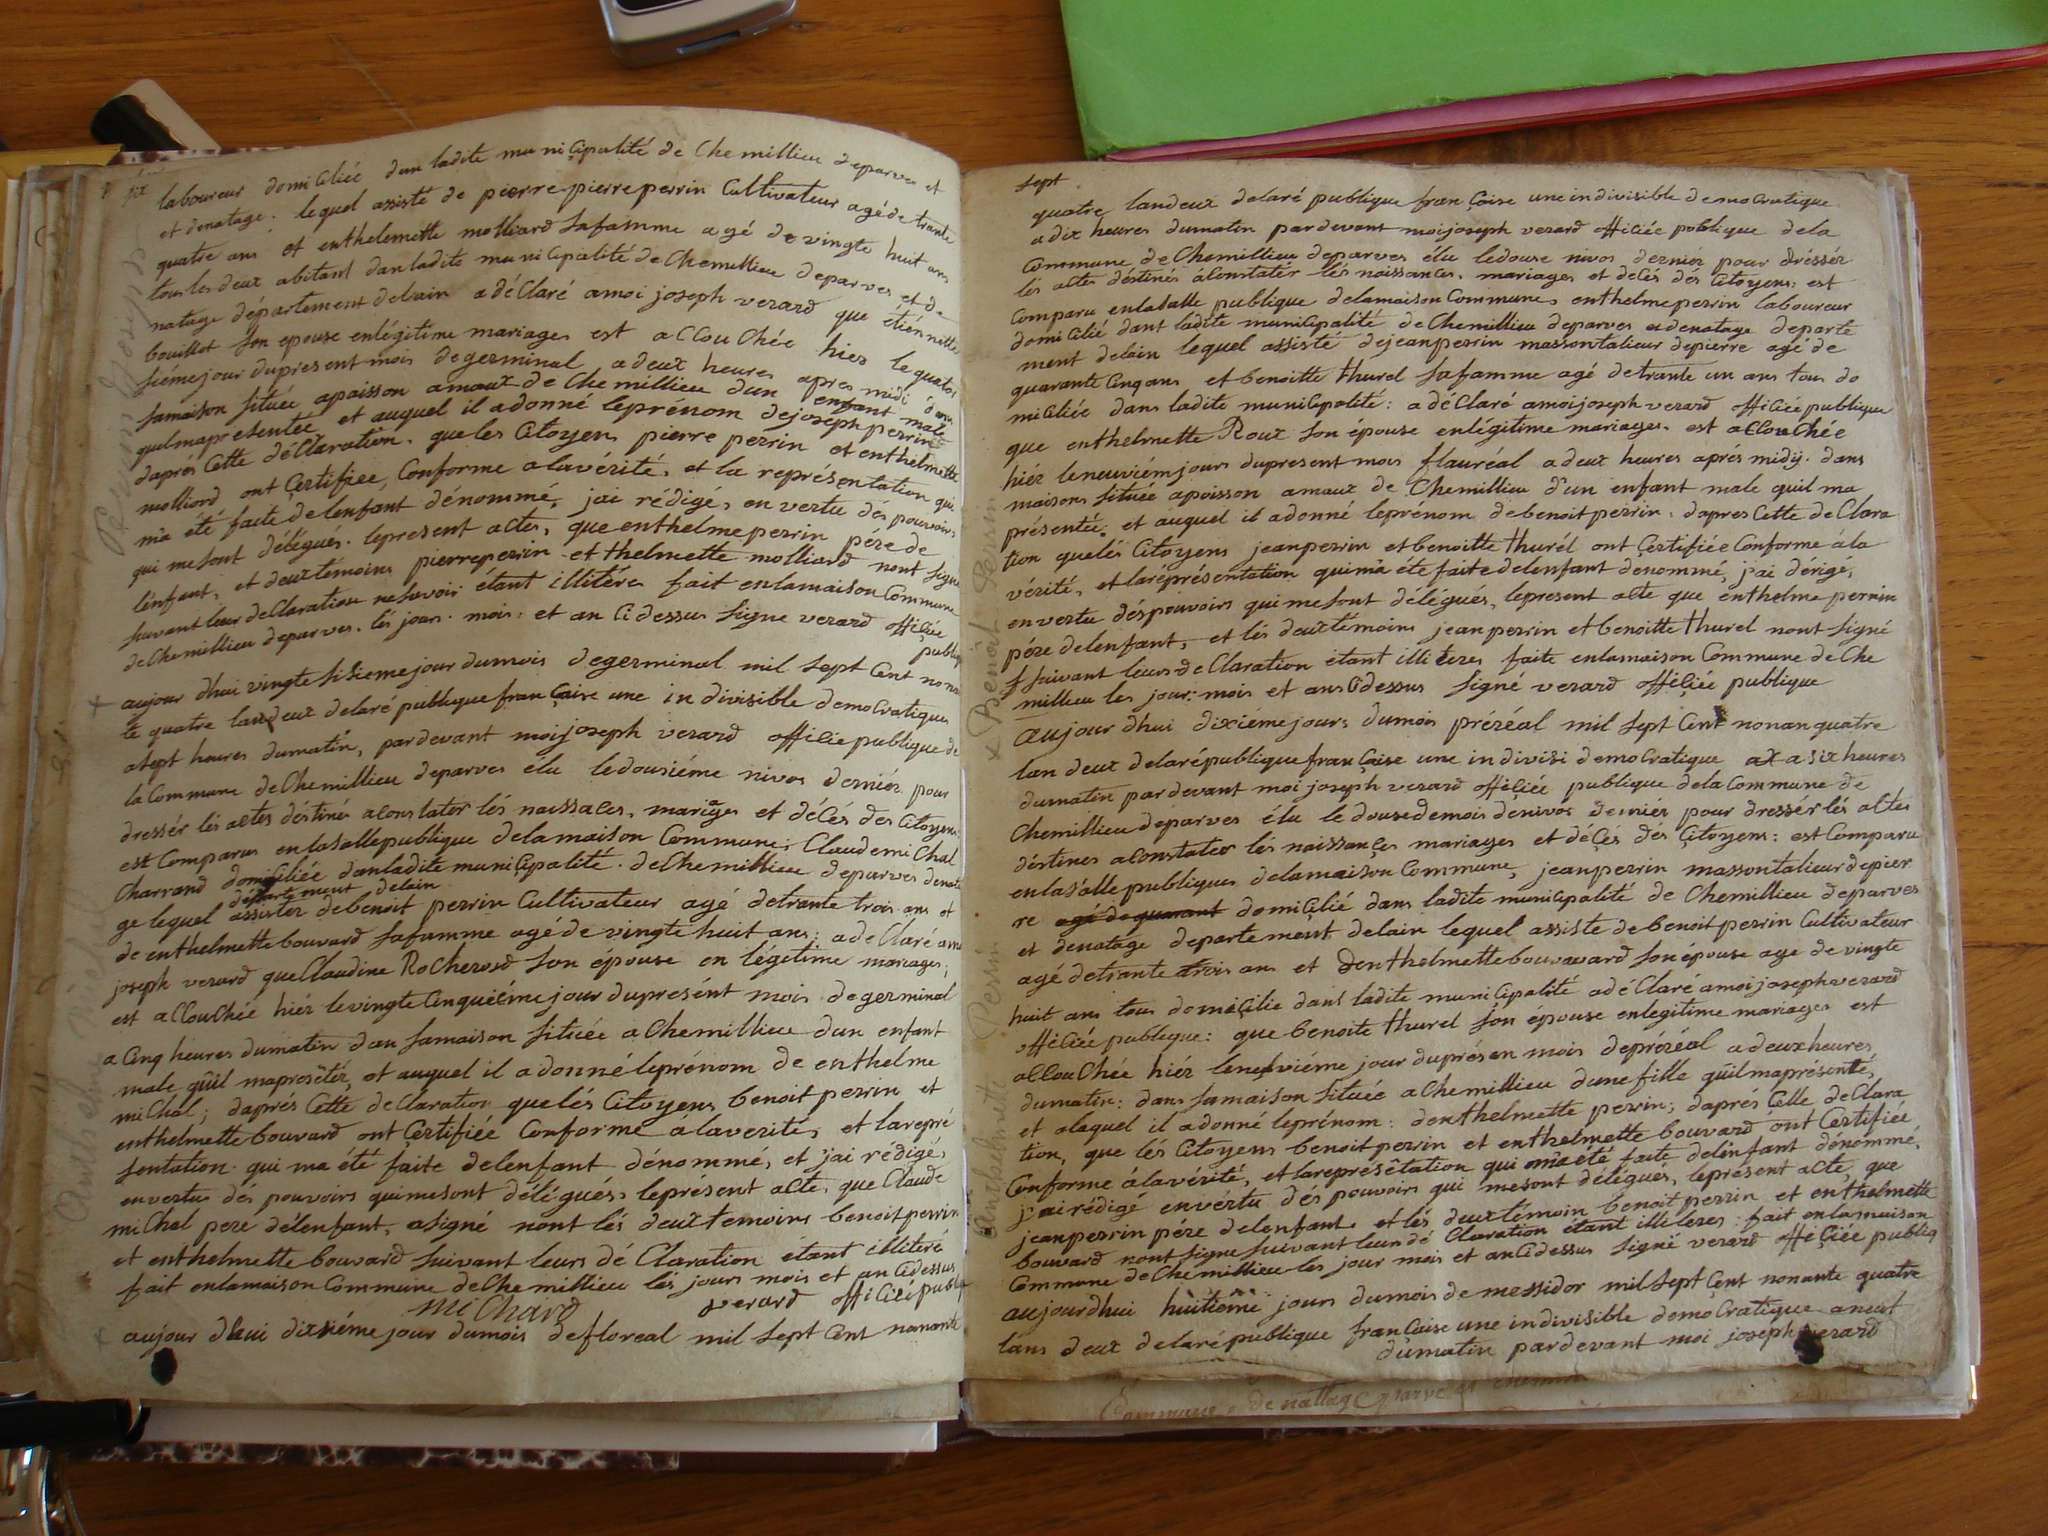 six
laboureur domiciliée dan ladite municipalité de Chemillieu deparves et
et denatage. lequel assisté de pierre pierre perrin Cultivateur agé de trante
quatre ans et enthelemette molliard safamme agé de vingte huit ans
tous les deux abitant dan ladite municipalité de Chemillieu deparves et de
natage département delain a déClaré amoi joseph verard que étiénnette
bouillot son epouse enlégitime mariages est aCCouChée hier le quator
siéme jour dupresent mois degerminal a deux heures apres midi dans
samaison située apaisson amaux de Chemillieu dun enfant male
quilmapresentée et auquel il adonné leprénom dejoséph perrin
daprés Cette déClaration. queles Citoyens pierre perrin et enthelmette
molliard ont Certifiee, Conforme alavérité, et la représentation qui
ma été faite delenfant dénommé, jai rédigé, en vertu des pouvoirs
qui me sont délégués. lepresent actes, que enthelme perrin pere de
lenfant, et deux témoins pierreperrin et thelmette molliard nont signé
suivant leur deClaration nesavoir étant illitéres fait enlamaison Commune
deChemillieu deparves. lés jours. mois. et an Cidessus signe verard officiée
publiq
aujour dhui vingte sisieme jour dumois degerminal mil sept Cent nonan
te quatre landeux delaré publique françaire une indivisible democratiques
asept heures dumatin, pardevant moijoseph verard officiée publique de
la Commune deChemillieu deparves élu ledousiéme nivos derniér pour
dressér lés actes déstinés aconstatér lés naissaces, mariages et déCés des Citoyens
est Comparus enlasallepublique delamaison Commune, Claudemichal
Charrand domiciliée danladite municipalité. deChemillieu deparves denata
département delain
ge lequel assistér debenoit perrin Cultivateur agé detrante trois ans et
de enthelmettebouvard safamme agé de vingte huit ans; adeClaré amoi
joseph verard que Claudine Rocherord son epouse en légitime mariages,
est aCCouChée hiér levingte Cinquiéme jour duprésént mois degerminal
a Cinq heures dumatin dan samaison située aChemillieu dun enfant
male quil mapresêtér, et auquel il adonné leprénom de enthelme
miChal; daprés Cette deClaration quelés Citoyens benoit perrin et
enthelmette bouvard ont Certifiée Conforme álaverité, et la repré
sentation qui ma été faite delenfant dénommé, et jai rédigé,
envertu dés pouvoirs quimesont délégués, leprésent acte, que Claude
miChal pere délenfant, asigné nont lés deux temoins benoit perrin
et enthelmette bouvard suivant leurs dé Claration étant illiteré
fait enlamaison Commune deChemillieu lés jours mois et an Cidessus
miChard verard officiée publiq
aujour dhui dixiéme jour dumois defloreal mil sept Cent nonante
sept
quatre landeux delaré publique française une indivisible democratique
adix heures dumatin pardevant moijoseph verard officiée publique dela
Commune deChemillieu deparves élu ledouse nivos derniér pour dréssér
lés actes déstinés áConstatér lés naissances, mariages et deCés dés Citoyens: est
Comparu enlasalle publique delamaison Commune, enthelmeperrin laboureur
domicilié dant ladite municipalité deChemillieu deparves et denatage departe
ment delain lequel assisté dejeanperrin massontalieur depierre agé de
quarante Cinq ans et benoitte thurel safamme agé detrante un ans tous do
miciliée dans ladite municipalité: adéClaré amoijoseph verard officiée publique
que enthelmette Roux son épouse enlégitime mariages. est aCCouChée
hiér leneuviémjours dupresent mois flauréal adeux heures apres midy. dans
maison située apoisson amaux de Chemillieu d'un enfant male quil ma
présentée. et auquel il adonné leprénom debenoit perrin. dapres Cette deClara
tion quelés Citoyens jeanperrin etbenoitte thurél ont Certifiée Conforme ála
vérité, et lareprésentation quima éte faite delenfant denommé, jai dérige,
envertu déspouvoirs qui me sont délégués, lepresent acte que enthelme perrin
pére delenfant, et lés deuxtemoins jeanperrin et benoitte thurel nont signé
suivant leurs deClaration étant illiteres faite enlamaison Commune deChe
millieu les jour: mois et ans Cidessus signé verard officiée publique
aujour dhui dixiémejours dumois préréal mil sept Cent nonanquatre
lan deux delarépublique française une indivisi democratique a six heures
dumatin pardevant moi joseph verard officiée publique dela Commune de
Chemillieu deparves élu le douse demois denivos derniér pour dressér lés actes
déstines aConstater lés naissançes mariages et déçés des Çitoyens: est Comparu
enlasalle publiques delamaison Commune, jeanperrin massontalieurdepier
re agé de quarant domicilié dans ladite municipalité de Chemillieu deparves
et denatage departement delain lequel assiste de benoitperrin Cultivateur
agé detrante trois ans et denthelmettebouvavard son épouse age de vingte
huit ans tous domiçilie dans ladite municipalité adéClaré amoi josephverard
officiée publique: que benoite thurel son epouse enlegitime mariages est
aCCouChée hiér leneuviéme jour duprésen mois depréréal adeuxheures
dumatin: dans samaison située aChemillieu dunefille quilmaprésenté,
et alaquel il adonné leprénom: denthelmette perrin; daprés Celle deClara
tion, que lés Citoyens benoitperrin et enthelmette bouvard ont Certifiée
Conforme álavérité, et lareprésêtation qui ma été faite delénfant dénommé,
jai rédigé envértu dés pouvoirs qui mesont délégués, leprésent acté, que
jeanperrin pére delenfant et lés deuxtémoin benoit perrin et enthelmette
bouvard nont signe suivant leur dé Claration étant illiteres: fait enlamaison
Commune deChemillieu les jour mois et anCidessus signé verard officiée publiq
aujourdhui huitiéme jours dumois de messidor mil sept Cent nonante quatre
lans deux delarépublique française une indivisible democratique aneuf
dumatin pardevant moi joseph verard
Perrin Joseph
Benoit Perrin
Enthelmette Perrin
Commune de nattage parve et chemil